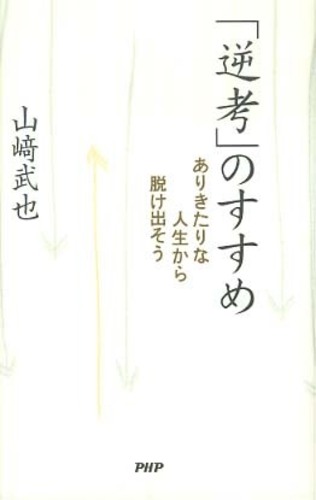 「逆考」のすすめ
ありきたりな
人生から
脱け出そう
山﨑武也
PHP